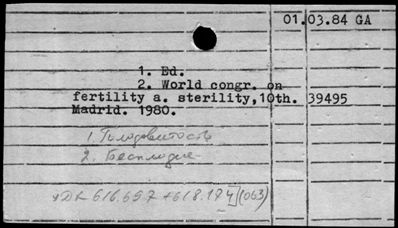 01.03.84 GA
1. Ed.
2. World congr. on
fertility a. sterility,10th. 39495
Madrid. 1980.
1. Плодовитость
2. Бесплодие
УДК 616.697+618.174](063)